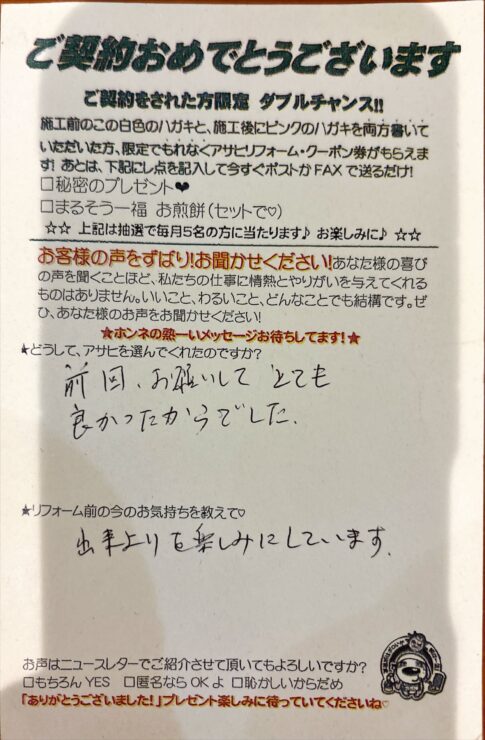 ご契約おめでとうございます
ご契約をされた方限定 ダブルチャンス!!
施工前のこの白色のハガキと、施工後にピンクのハガキを両方書いて
いただいた方、限定でもれなくアサヒリフォーム・クーポン券がもらえま
す! あとは、下記にレ点を記入して今すぐポストかFAXで送るだけ!
□秘密のプレゼント❤
□まるそう一福 お煎餅(セットで♡)
☆☆ 上記は抽選で毎月5名の方に当たります♪ お楽しみに♪ ☆☆
お客様の声をずばり!お聞かせください!あなた様の喜び
の声を聞くことほど、私たちの仕事に情熱とやりがいを与えてくれる
ものはありません。いいこと、わるいこと、どんなことでも結構です。ぜ
ひ、あなた様のお声をお聞かせください!
★ホンネの熱ーいメッセージお待ちしてます!★
★どうして、アサヒを選んでくれたのですか?
前回、お願いしてとても
良かったからでした。
★リフォーム前の今のお気持ちを教えて♡
出来上りを楽しみにしています。
お声はニュースレターでご紹介させて頂いてもよろしいですか?
□もちろんYES □匿名ならOKよ □恥かしいからだめ
「ありがとうございました!」プレゼント楽しみに待っていてくださいね♡